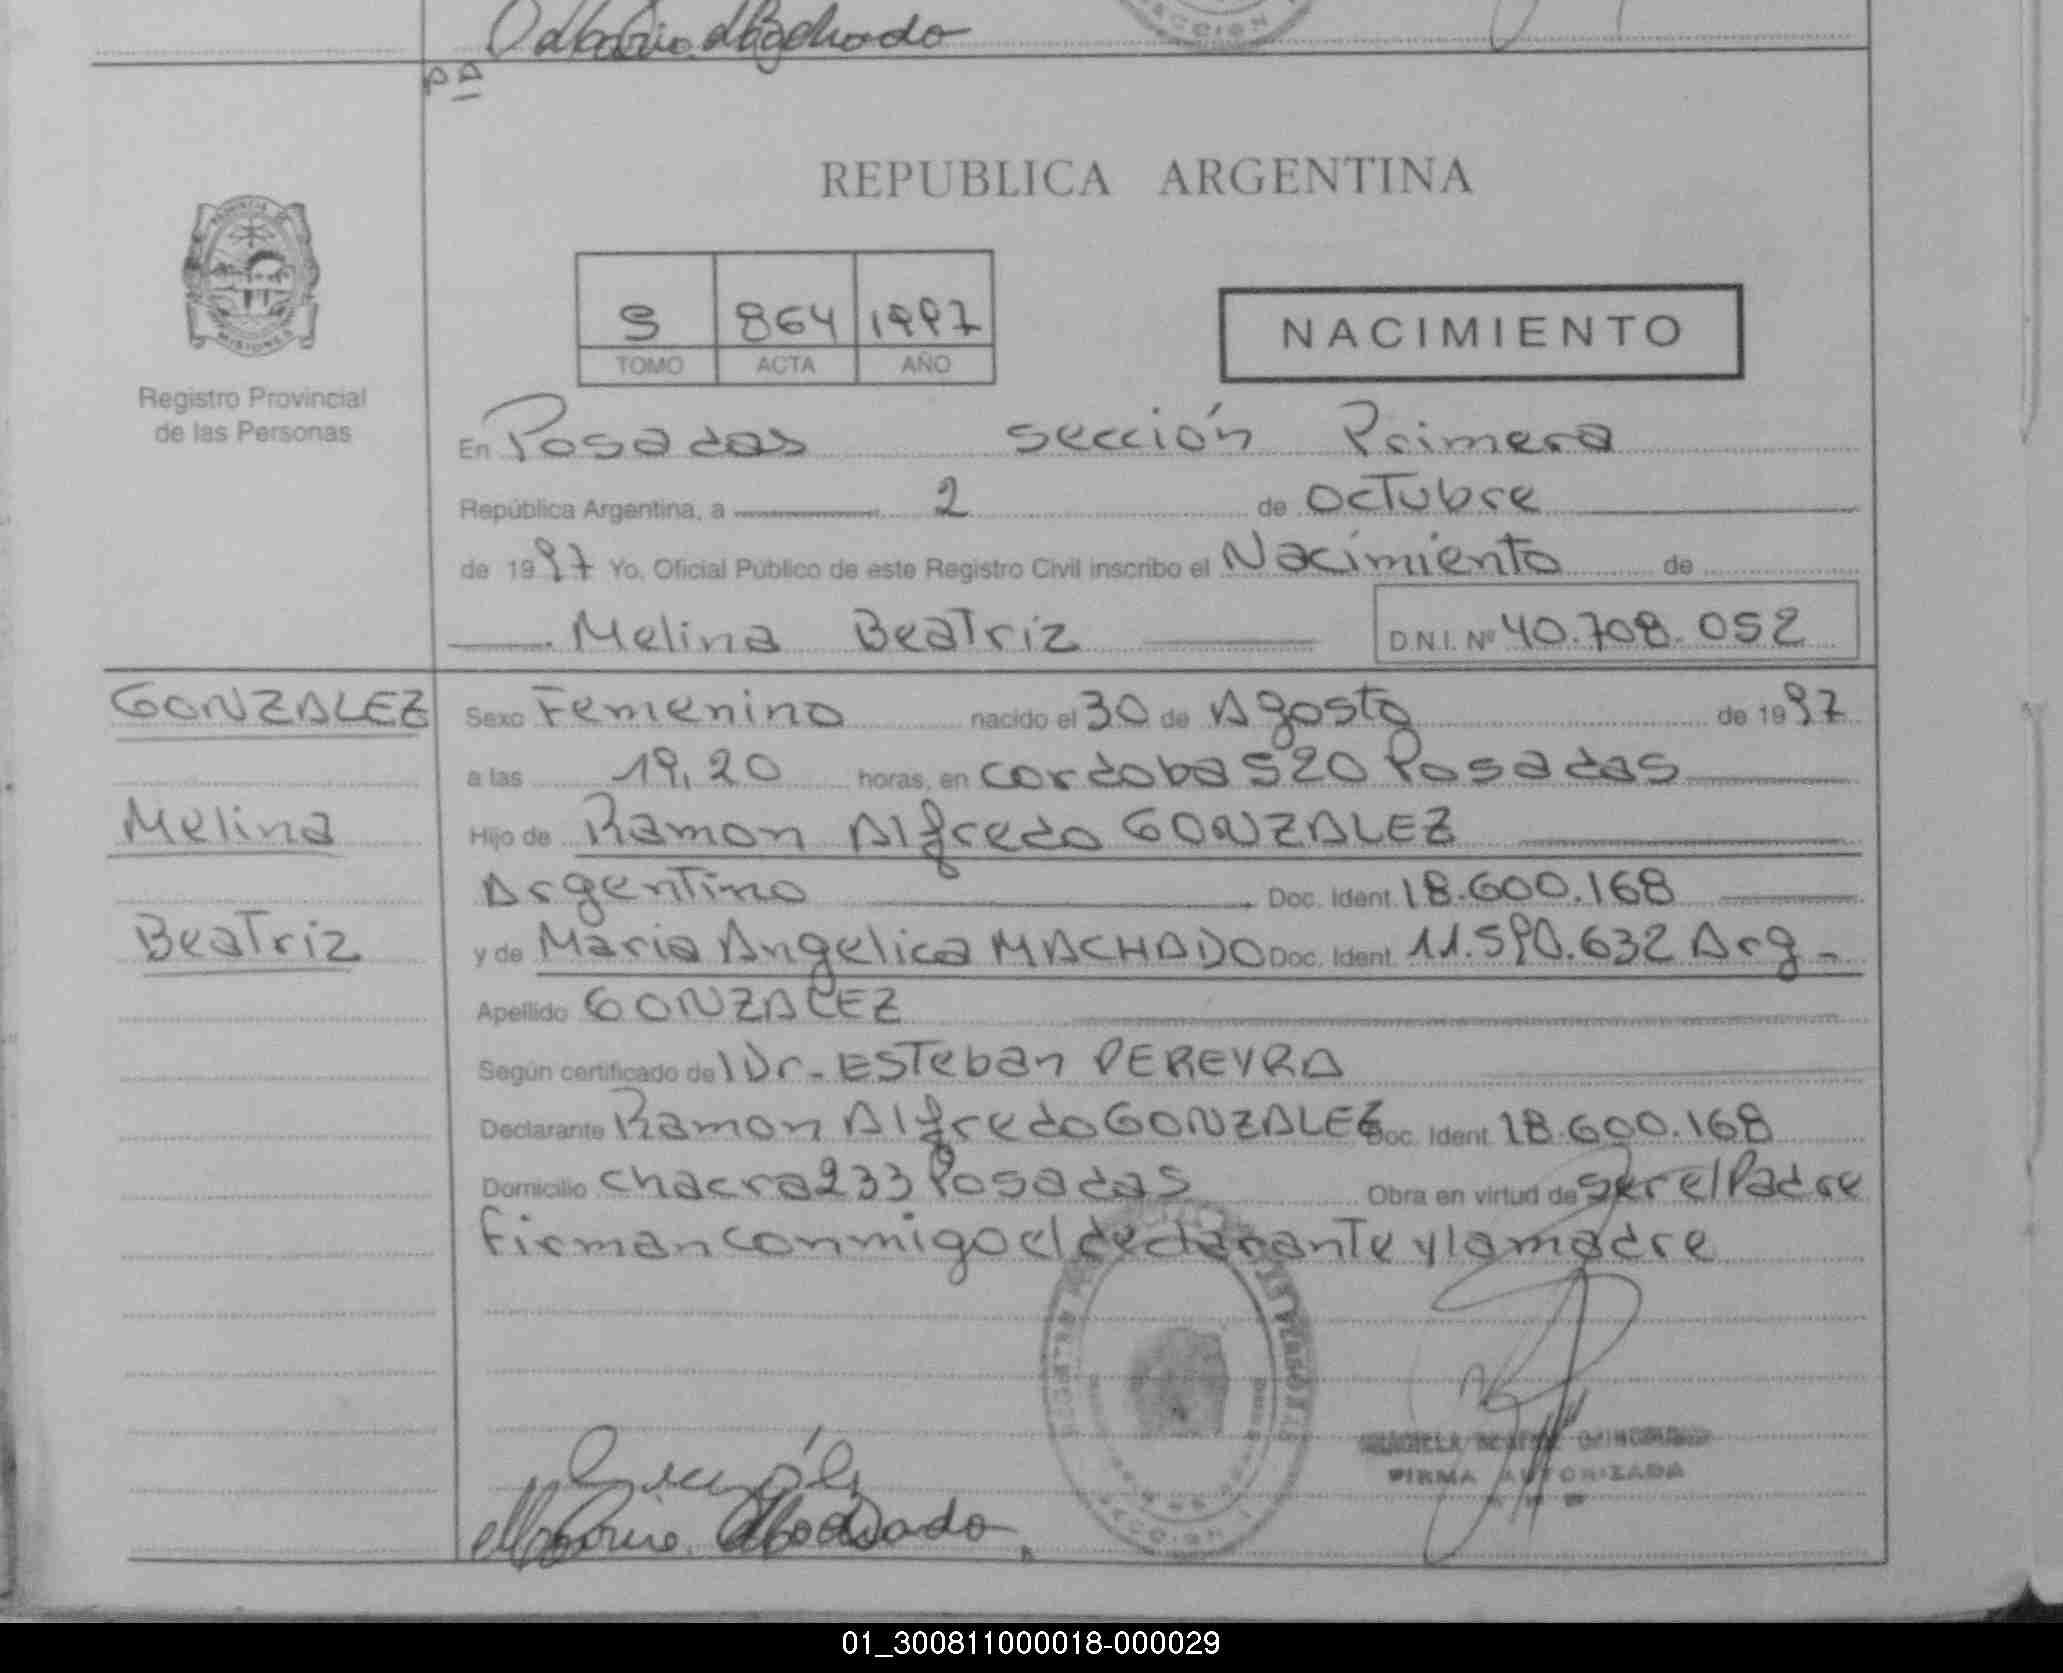 REPUBLICA ARGENTINA
PROVINCIA DE
MISIONES
Registro Provincial
de las Personas
S 864 1997
TOMO ACTA AÑO
NACIMIENTO
En Posadas sección Primera
República Argentina, a 2 de Octubre
de 1997 Yo, Oficial Público de este Registro Civil inscribo el Nacimiento de
Melina Beatriz D.N.I. Nº 40.708.052
GONZALEZ
Melina
Beatriz
Sexo Femenino nacido el 30 de Agosto de 1997
a las 19,20 horas, en cordoba 520 Posadas
Hijo de Ramon Alfredo GONZALEZ
Argentino Doc. Ident. 18.600.168
y de Maria Angelica MACHADO Doc. Ident. 11.590.632 Arg-
Apellido GONZALEZ
Según certificado de Dr- Esteban PEREYRA
Declarante Ramon Alfredo GONZALEZ Doc. Ident. 18.600.168
Domicilio chacra 233 Posadas Obra en virtud de ser el Padre
firman conmigo el declarante y la madre
FIRMA AUTORIZADA
01_300811000018-000029